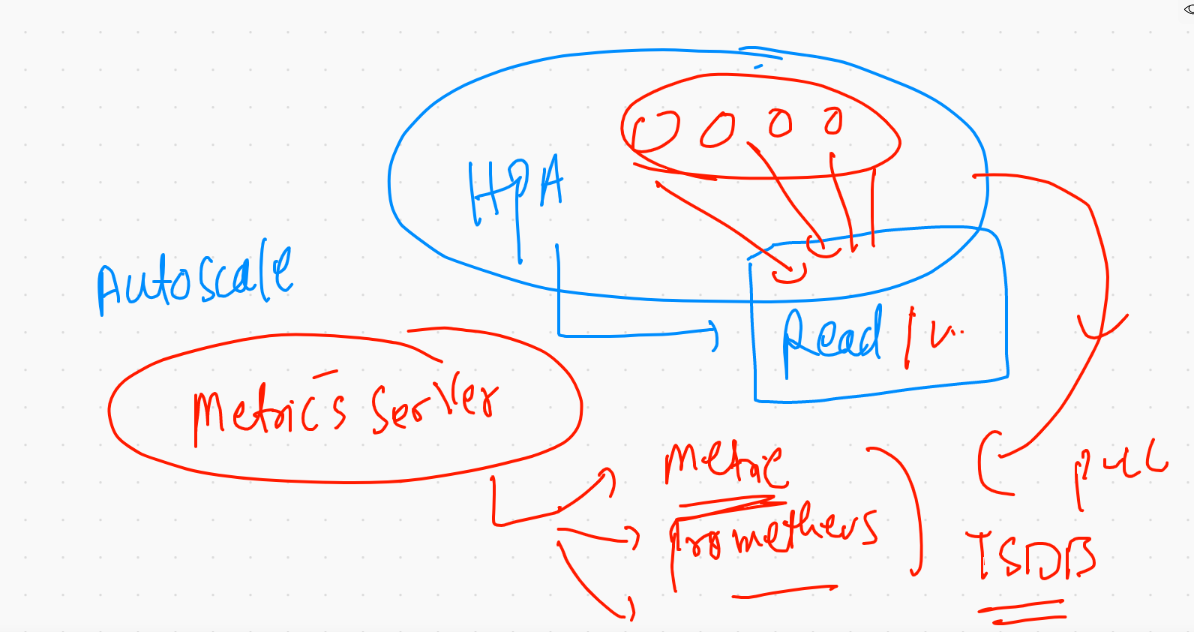 HPA
Autoscale
Read /
Metrics Server
Metric
pull
Prometheus
TSDB